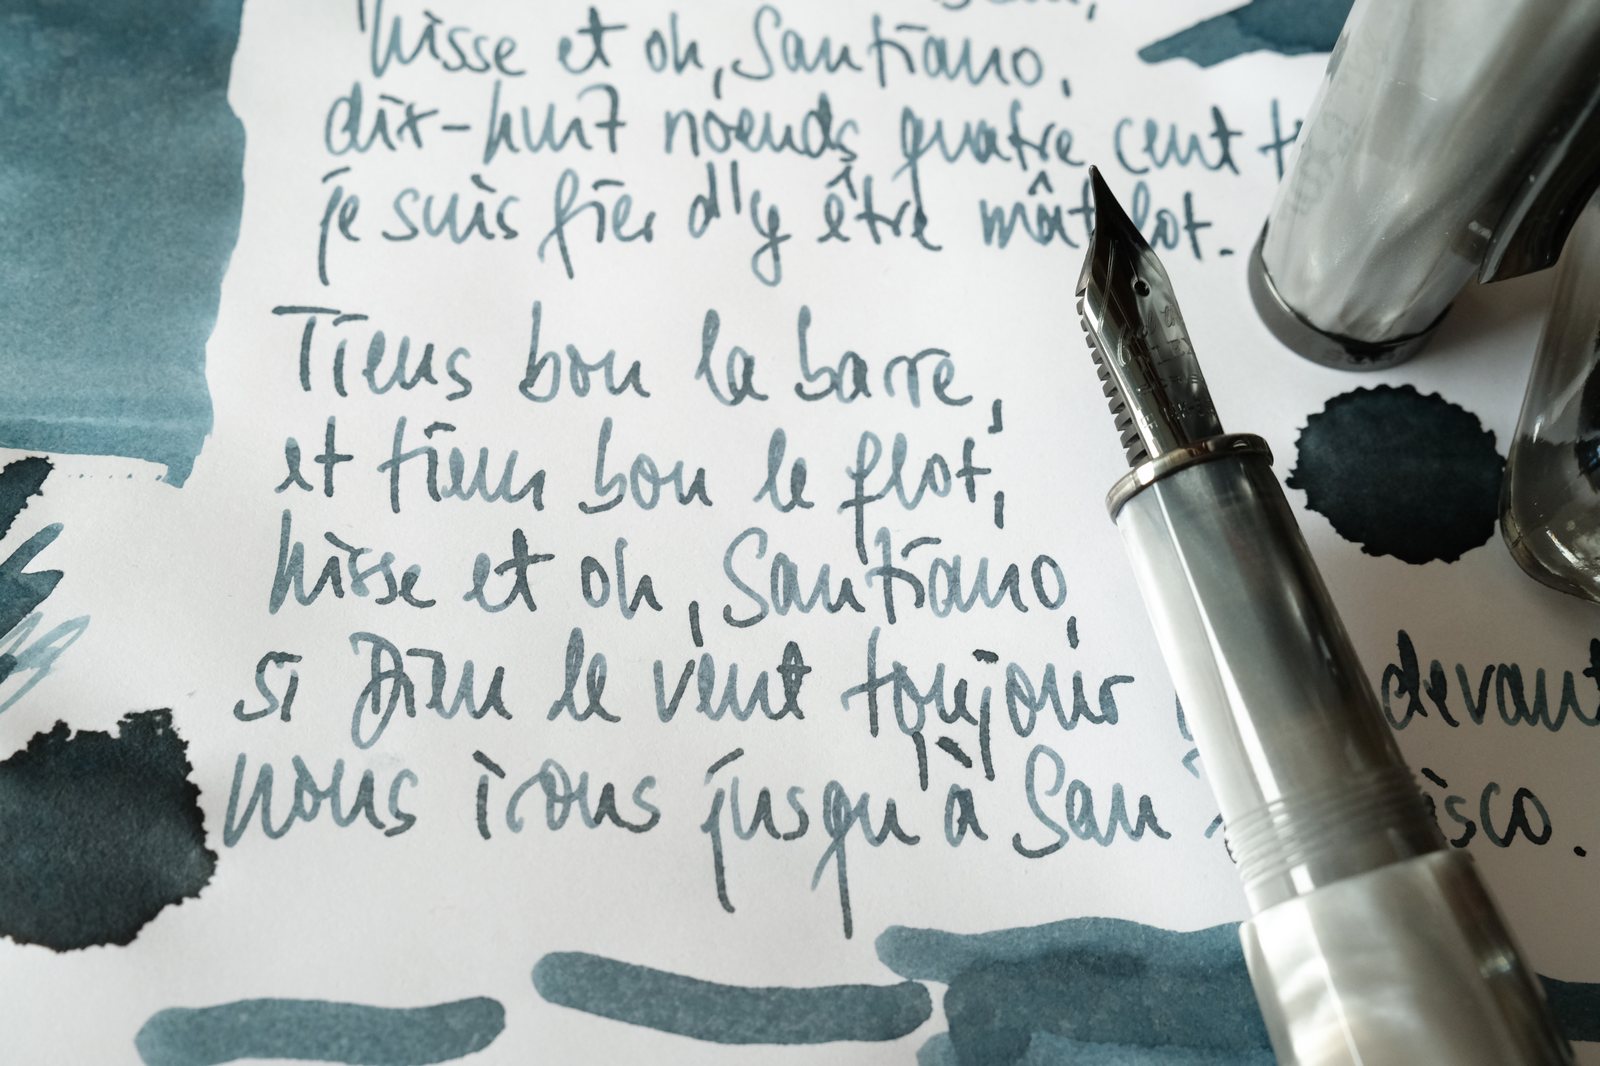 hisse et oh, Santiano,
dix-huit noeuds quatre cent
je suis fier d'y être mâtelot.
Tiens bon la barre,
et tiens bon le flot,
hisse et oh, Santiano,
si Dieu le veut toujours devant
nous irons jusqu'à San